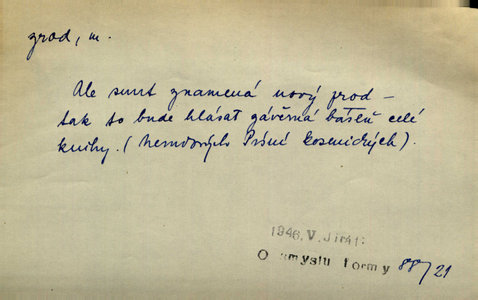 zrod, m.
Ale smrt znamená nový zrod –
tak to bude hlásat závěrná báseň celé
knihy. (Nerudových Písní kosmických).
1946. V. Jirát:
O smyslu formy 88/21